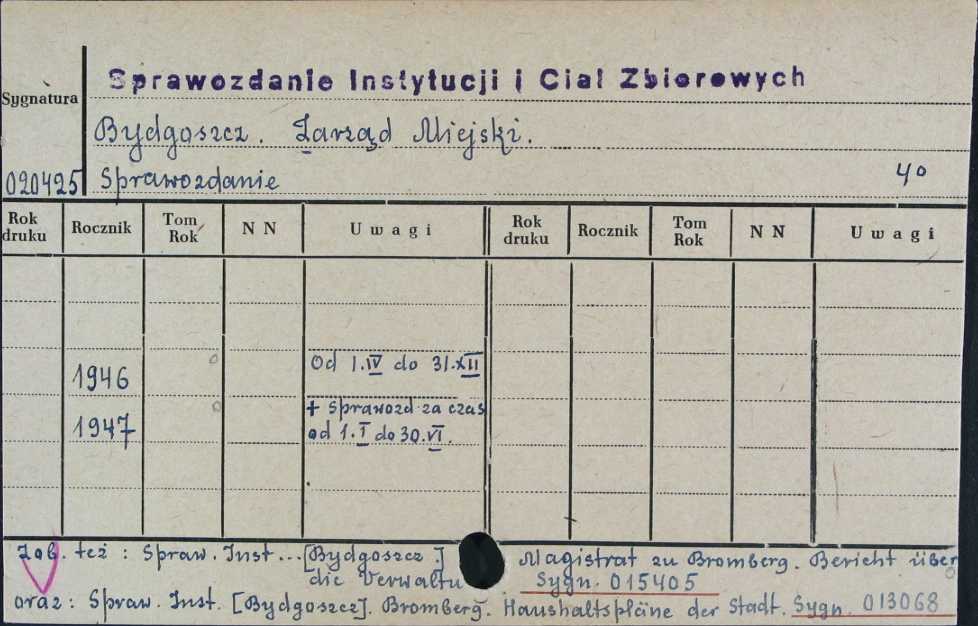 Sprawozdanie Instytucji i Ciał Zbiorowych
Sygnatura
Bydgoszcz. Zarząd Miejski.
020425 Sprawozdanie 4°
Rok druku Rocznik Tom Rok N N Uwagi Rok druku Rocznik Tom Rok N N Uwagi
1946 Od 1.IV do 31.XII
1947 + Sprawozd. za czas
od 1.I do 30.VI.
Zob. też : Spraw. Inst... [Bydgoszcz.] Magistrat zu Bromberg. Bericht über
die Verwaltu Sygn. 015405
oraz : Spraw. Inst. [Bydgoszcz]. Bromberg. Haushaltspläne der Stadt. Sygn. 013068